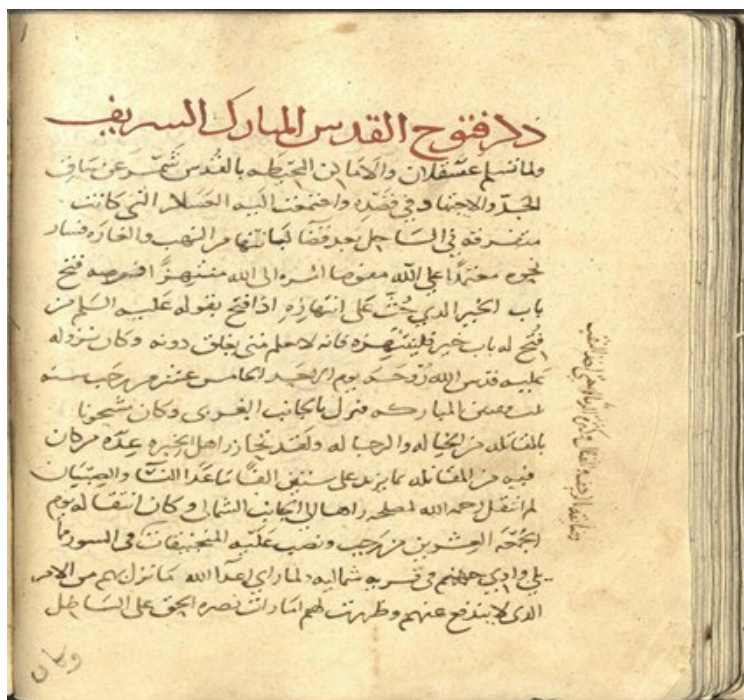 ذكر فتوح القدس المبارك الشريف
ولما تسلم عسقلان والاماكن المحيطه بالقدس شمر عن ساق
الجد والاجتهاد في قصده واجتمعت اليه العساكر التي كانت
متفرقة في الساحل بعد قضا لباناتها من النهب والغاره فسار
نحوه معتمدا على الله مفوضا امره الى الله منتهزا فرصه فتح
باب الخير الذي حث على انتهازه اذا فتح بقوله عليه السلم من
فتح له باب خير فلينتهزه فانه لا يعلم متى يغلق دونه وكان نزوله
عليه قدس الله روحه يوم الاحد الخامس عشر من رجب سنه
المباركه فنزل بالجانب الغربي وكان مشحونا
بالمقاتله من الخياله والرجاله ولقد اهل الخبره عده من كان
فيه من المقاتله بما يزيد على ستين الفا ما عدا النسا والصبيان
ثم انتقل رحمه الله لمصلحه راها الى الجانب الشمالي وكان انتقاله يوم
الجمعه العشرين من رجب ونصب عليه المنجنيقات في السور مما
يلي وادي جهنم في شماليه ولما راى اعدا الله ما نزل بهم من الامر
الذي لا يندفع عنهم وظهرت لهم امارات نصره الحق على الباطل
وكان